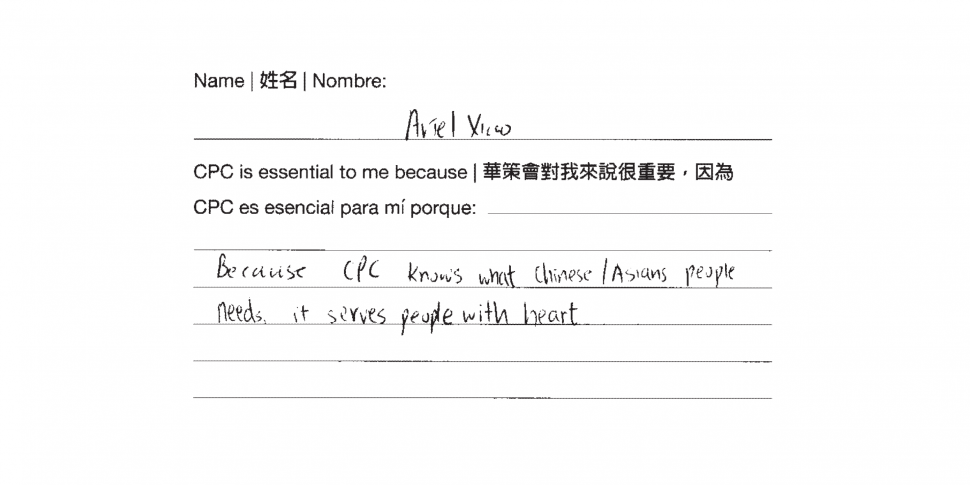 Name | 姓名 | Nombre:
Ariel Xiao
CPC is essential to me because | 華策會對我來說很重要，因為
CPC es esencial para mí porque:
Because CPC knows what Chinese/Asians people
needs. it serves people with heart